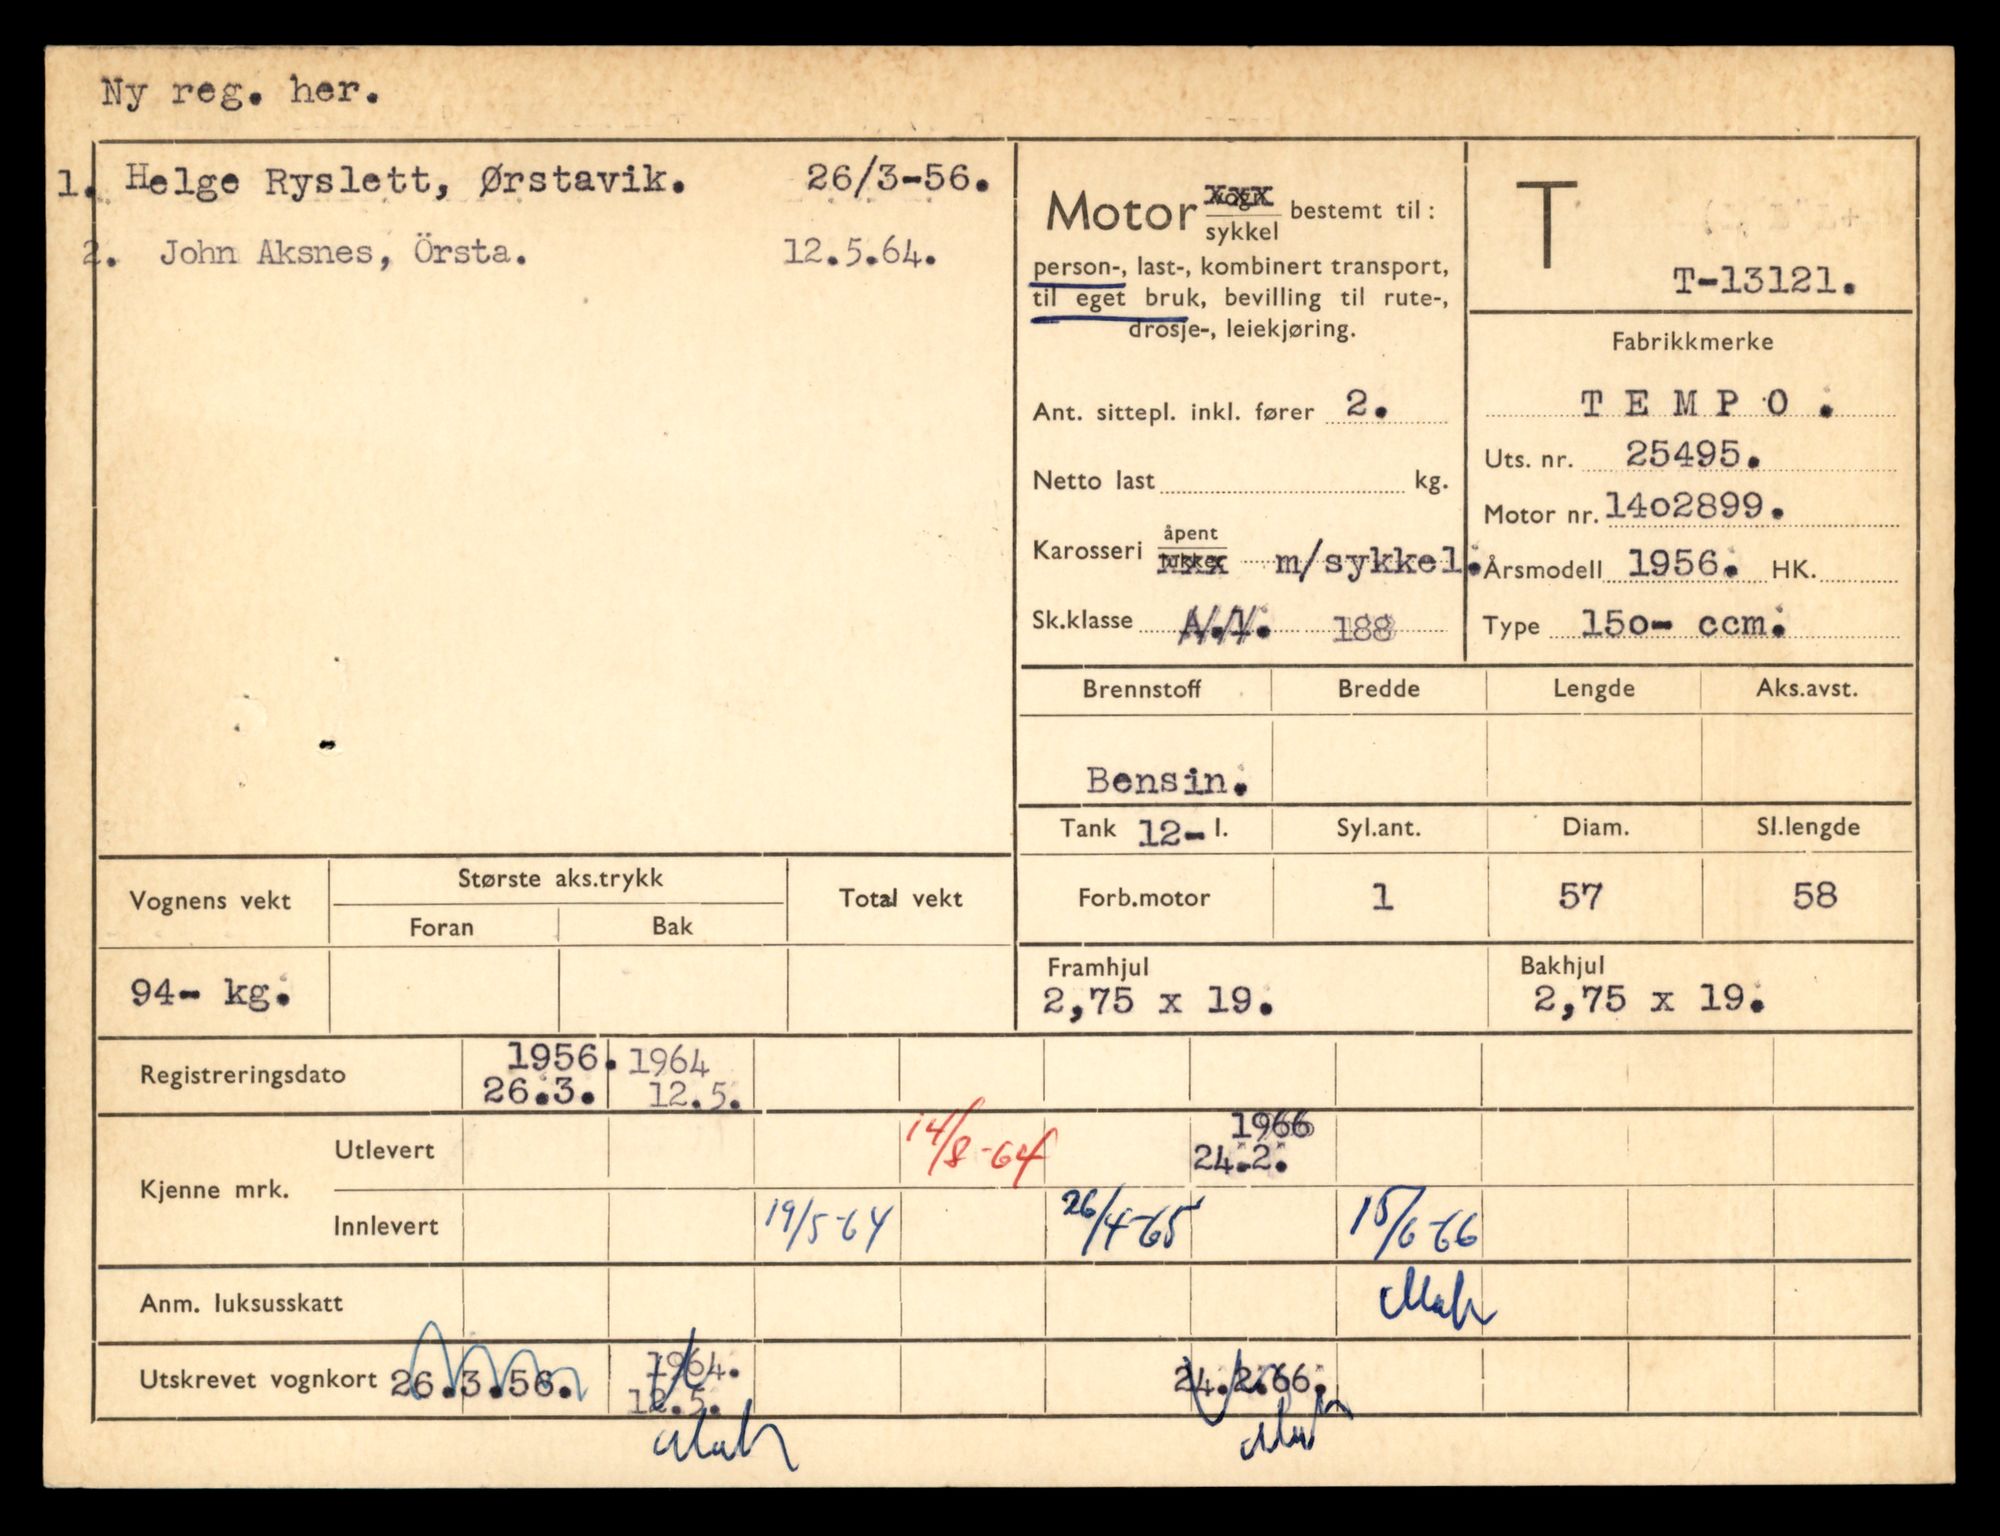 Ny reg. her.
1. Helge Ryslett, Ørstavik. 26/3-56.
2. John Aksnes, Örsta. 12.5.64.
Motor vogn
sykkel bestemt til:
person-, last-, kombinert transport,
til eget bruk, bevilling til rute-,
drosje-, leiekjøring.
Ant. sittepl. inkl. fører 2.
Netto last kg.
Karosseri åpent
lukket m/sykkel.
Sk.klasse A.1. 188
T
T-13121.
Fabrikkmerke
TEMPO.
Uts. nr. 25495.
Motor nr. 14o2899.
Årsmodell 1956. HK.
Type 15o- ccm.
Brennstoff Bredde Lengde Aks.avst.
Bensin.
Tank 12- l. Syl.ant. Diam. Sl.lengde
Forb.motor 1 57 58
Framhjul Bakhjul
2,75 x 19. 2,75 x 19.
Vognens vekt Største aks.trykk Total vekt
Foran Bak
94- kg.
Registreringsdato 1956. 1964
26.3. 12.5.
Kjenne mrk.
Utlevert 14/8-64 1966
24.2.
Innlevert 19/5-64 26/4-65 15/6-66
Anm. luksusskatt
Utskrevet vognkort 26.3.56. 1964. 24.2.66.
12.5.